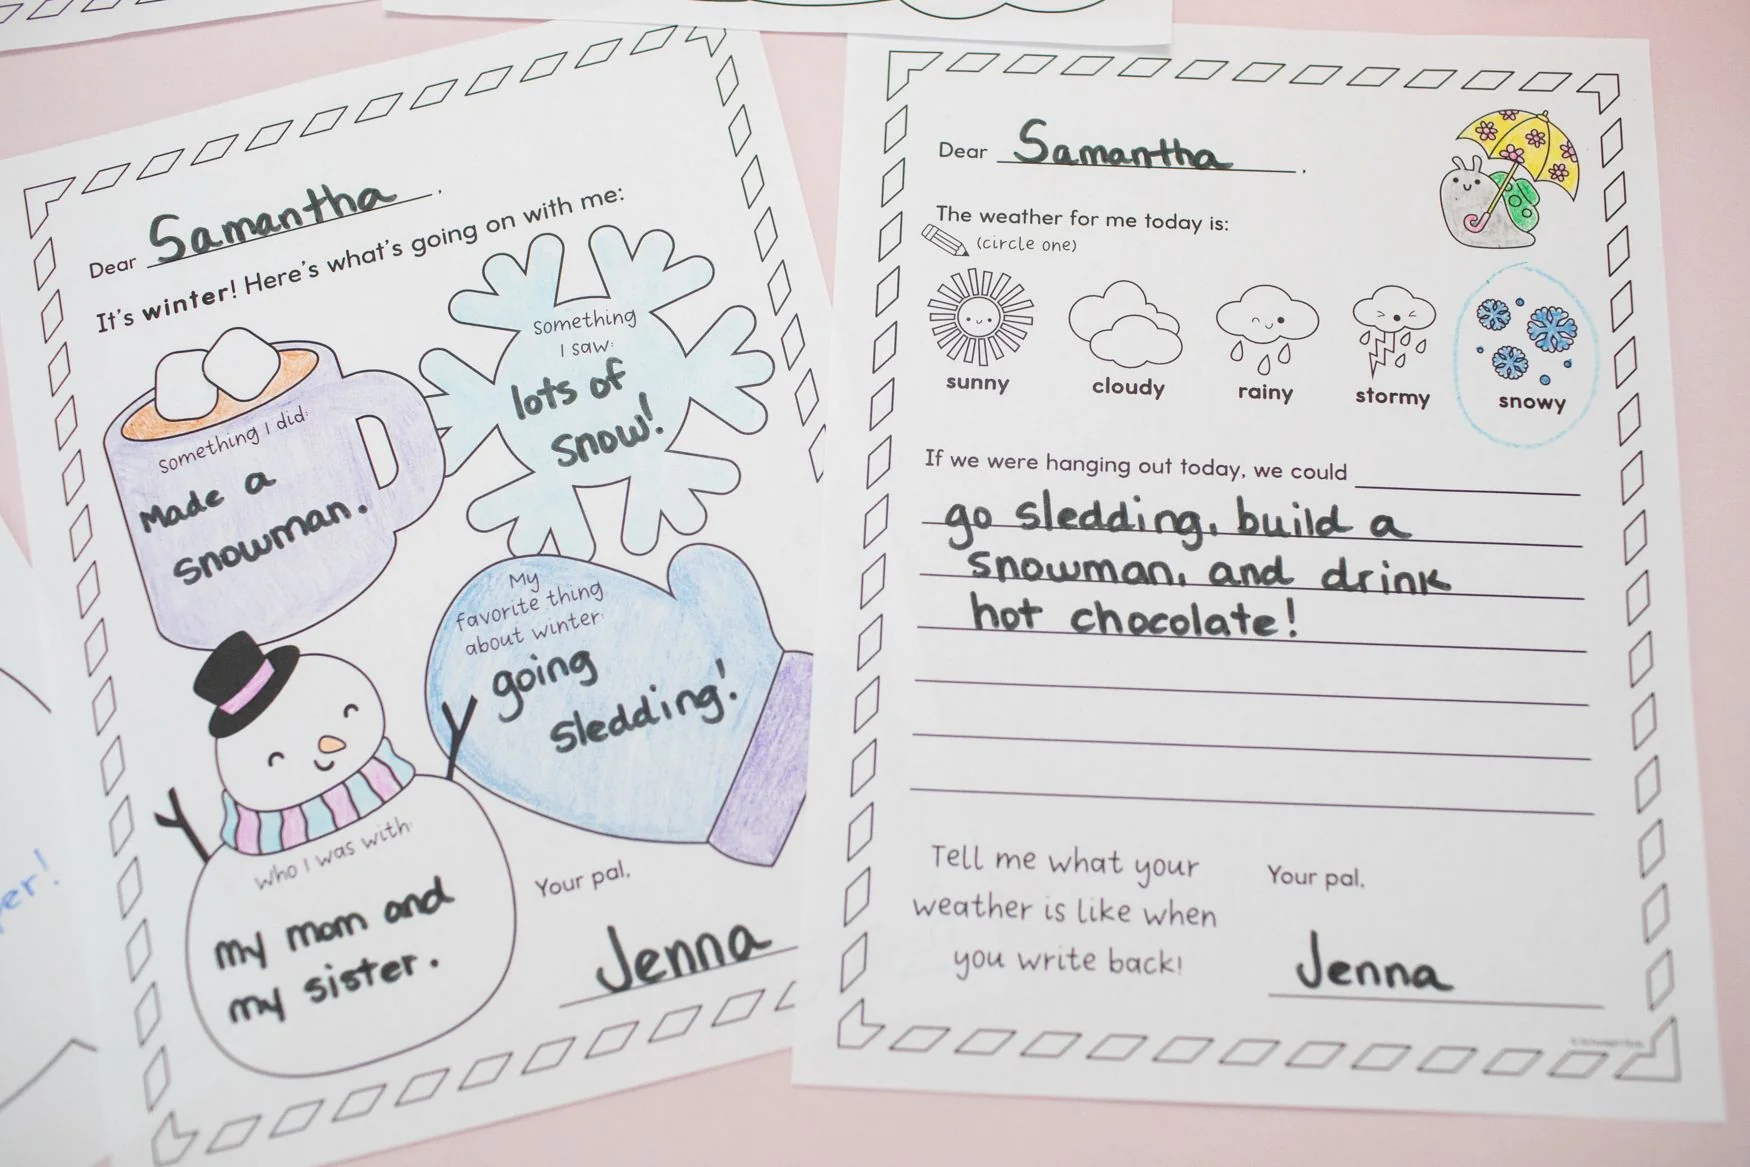 Dear Samantha,
It's winter! Here's what's going on with me:
something I did:
Made a
snowman.
something
I saw:
lots of
snow!
My
favorite thing
about winter:
going
sledding!
who I was with:
my mom and
my sister.
Your pal,
Jenna
Dear Samantha,
The weather for me today is:
(circle one)
sunny cloudy rainy stormy snowy
If we were hanging out today, we could
go sledding, build a
snowman, and drink
hot chocolate!
Tell me what your
weather is like when
you write back!
Your pal,
Jenna